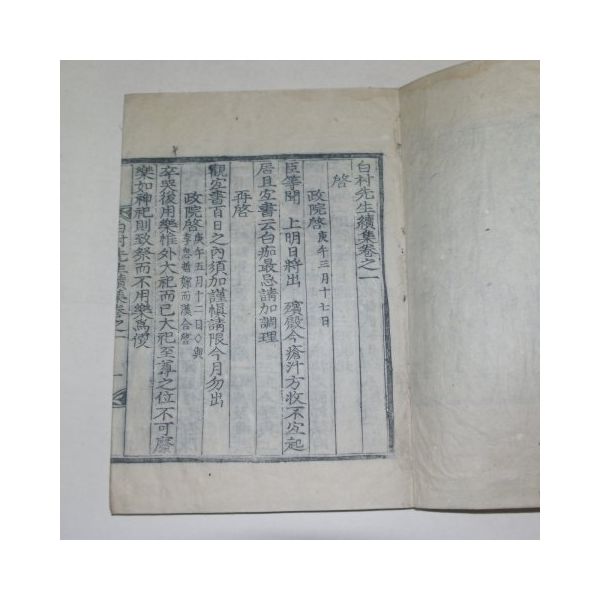 白村先生續集卷之一
啓
政院啓 庚午三月十七日
臣等聞 上明日將出 殯殿今瘡汁方收不宜起
居且方書云白痂最忌請加調理
再啓
觀方書百日之內須加謹愼請限今月勿出
政院啓 庚午五月十二日○與李啓甸 而漢合啓
卒哭後用樂惟外大祀而已大祀至尊之位不可廢
樂如神祀則致祭而不用樂爲便
白村先生續集卷之一 一